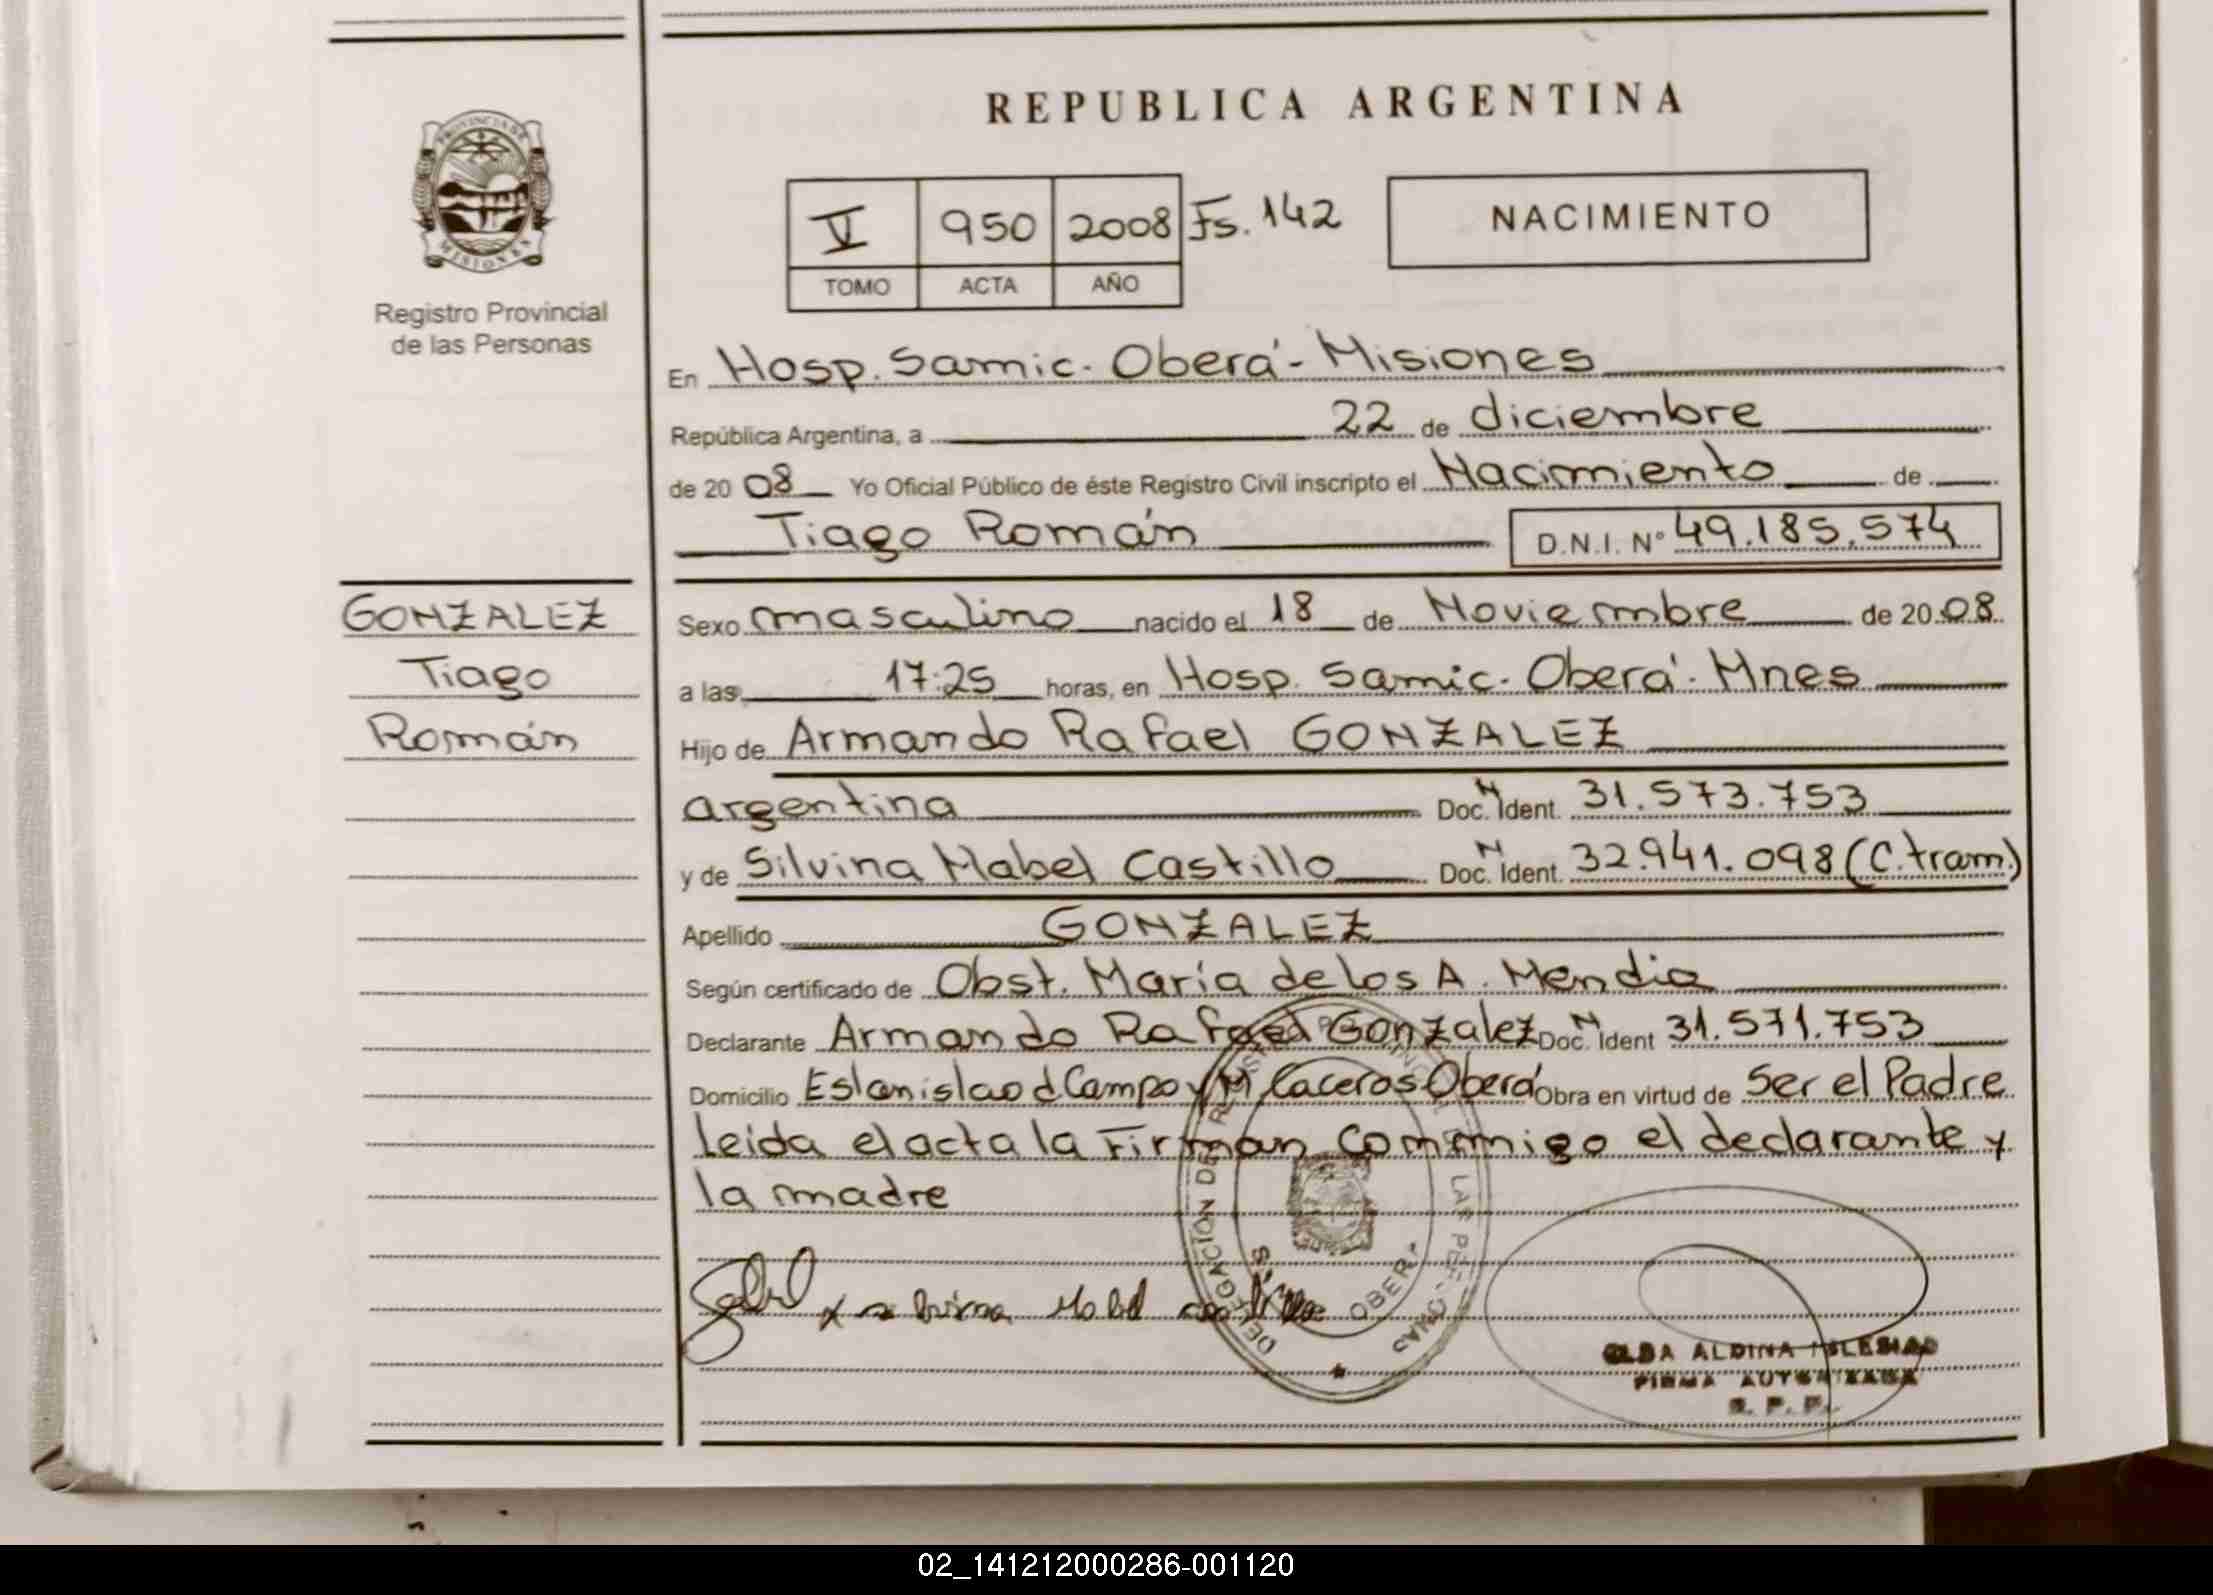 REPUBLICA ARGENTINA
PROVINCIA DE
MISIONES
Registro Provincial
de las Personas
V 950 2008 Fs. 142
TOMO ACTA AÑO
NACIMIENTO
En Hosp. Samic. Oberá - Misiones
República Argentina, a 22 de diciembre
de 2008 Yo Oficial Público de éste Registro Civil inscripto el Nacimiento de
Tiago Román D.N.I. Nº 49.185.574
GONZALEZ
Tiago
Román
Sexo masculino nacido el 18 de Noviembre de 2008
a las 17:25 horas, en Hosp. Samic. Oberá. Mnes
Hijo de Armando Rafael GONZALEZ
argentina Doc. N Ident. 31.573.753
y de Silvina Mabel Castillo Doc. N Ident. 32.941.098 (C. tram.)
Apellido GONZALEZ
Según certificado de Obst. María de los A. Mendia
Declarante Armando Rafael Gonzalez Doc. N Ident 31.571.753
Domicilio Eslanislao d Campo y M. Caceros Oberá Obra en virtud de Ser el Padre
leida el acta la Firman Commigo el declarante y
la madre
DELEGACION DEL REGISTRO PROVINCIAL DE LAS PERSONAS
OBERA
ELBA ALDINA IGLESIAS
FIRMA AUTORIZADA
R. P. P.
02_141212000286-001120